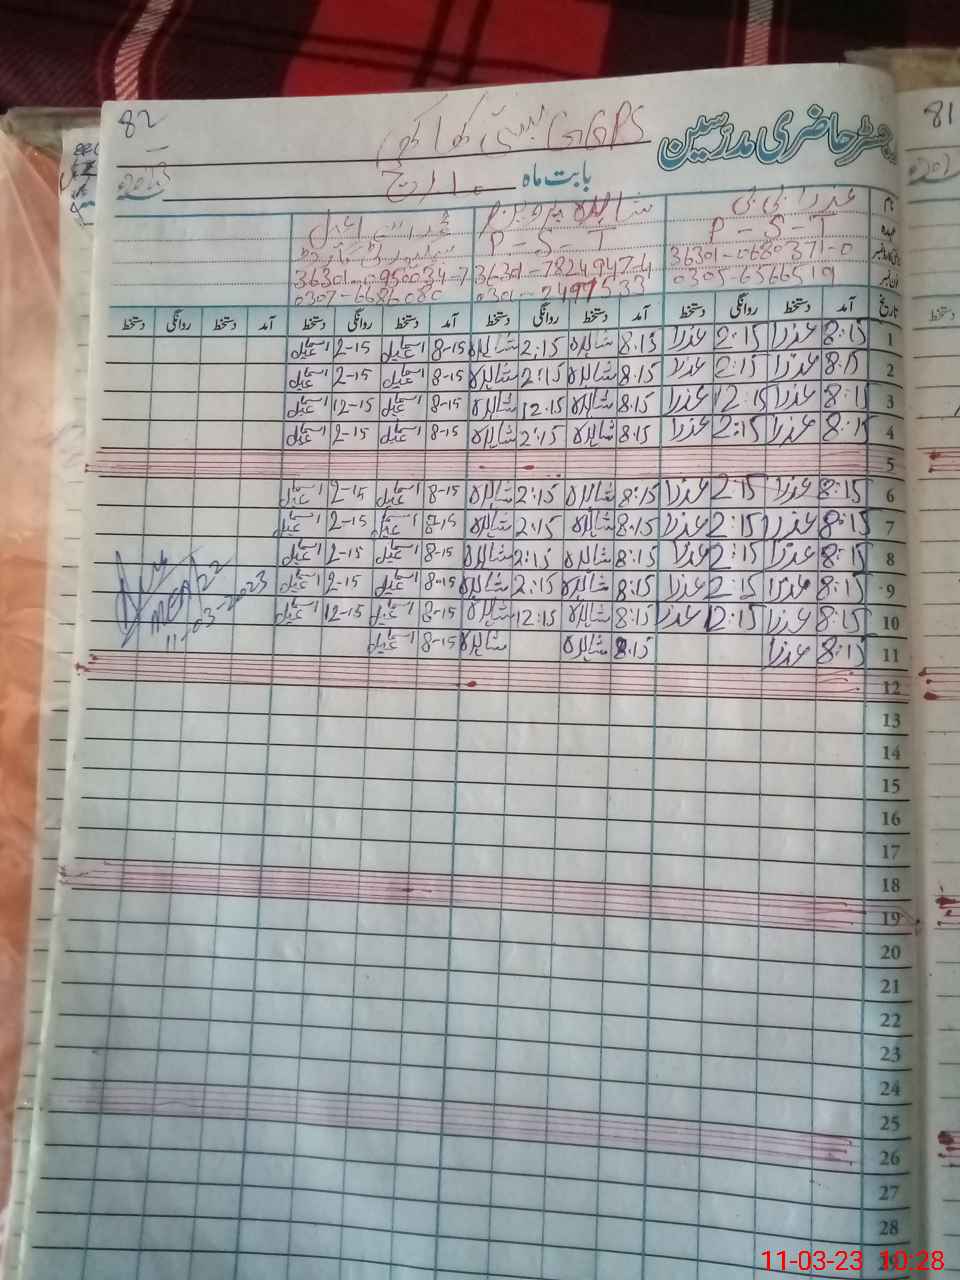 82
81
رجسٹر حاضری مدرسین
GGPS بستی کھا کھی
2023
بابت ماہ مارچ
نام عذرا بی بی شاہرہ پروین
عہدہ P - S - T P - S - T
36301-0680371-0 36301-7824947-4 36301-0950034-7
0305-6376651 9 0301-2497533 0307-6686080
تاریخ آمد دستخط روانگی دستخط آمد دستخط روانگی دستخط آمد دستخط روانگی دستخط آمد دستخط روانگی دستخط
1 8:15 عذرا 2:15 عذرا 8:15 شاہرہ 2:15 شاہرہ 8-15 اسماعیل 2-15 اسماعیل
2 8:15 عذرا 2:15 عذرا 8:15 شاہرہ 2:15 شاہرہ 8-15 اسماعیل 2-15 اسماعیل
3 8:15 عذرا 12:15 عذرا 8:15 شاہرہ 12:15 شاہرہ 8-15 اسماعیل 12-15 اسماعیل
4 8:15 عذرا 2:15 عذرا 8:15 شاہرہ 2:15 شاہرہ 8-15 اسماعیل 2-15 اسماعیل
5
6 8:15 عذرا 2:15 عذرا 8:15 شاہرہ 2:15 شاہرہ 8-15 اسماعیل 2-15 اسماعیل
7 8:15 عذرا 2:15 عذرا 8:15 شاہرہ 2:15 شاہرہ 8-15 اسماعیل 2-15 اسماعیل
8 8:15 عذرا 2:15 عذرا 8:15 شاہرہ 2:15 شاہرہ 8-15 اسماعیل 2-15 اسماعیل
9 8:15 عذرا 2:15 عذرا 8:15 شاہرہ 2:15 شاہرہ 8-15 اسماعیل 2-15 اسماعیل
10 8:15 عذرا 12:15 عذرا 8:15 شاہرہ 12:15 شاہرہ 8-15 اسماعیل 12-15 اسماعیل
11 8:15 عذرا 8:15 شاہرہ شاہرہ 8-15 اسماعیل
MEA 22
11-03-2023
12
13
14
15
16
17
18
19
20
21
22
23
24
25
26
27
28
11-03-23 10:28